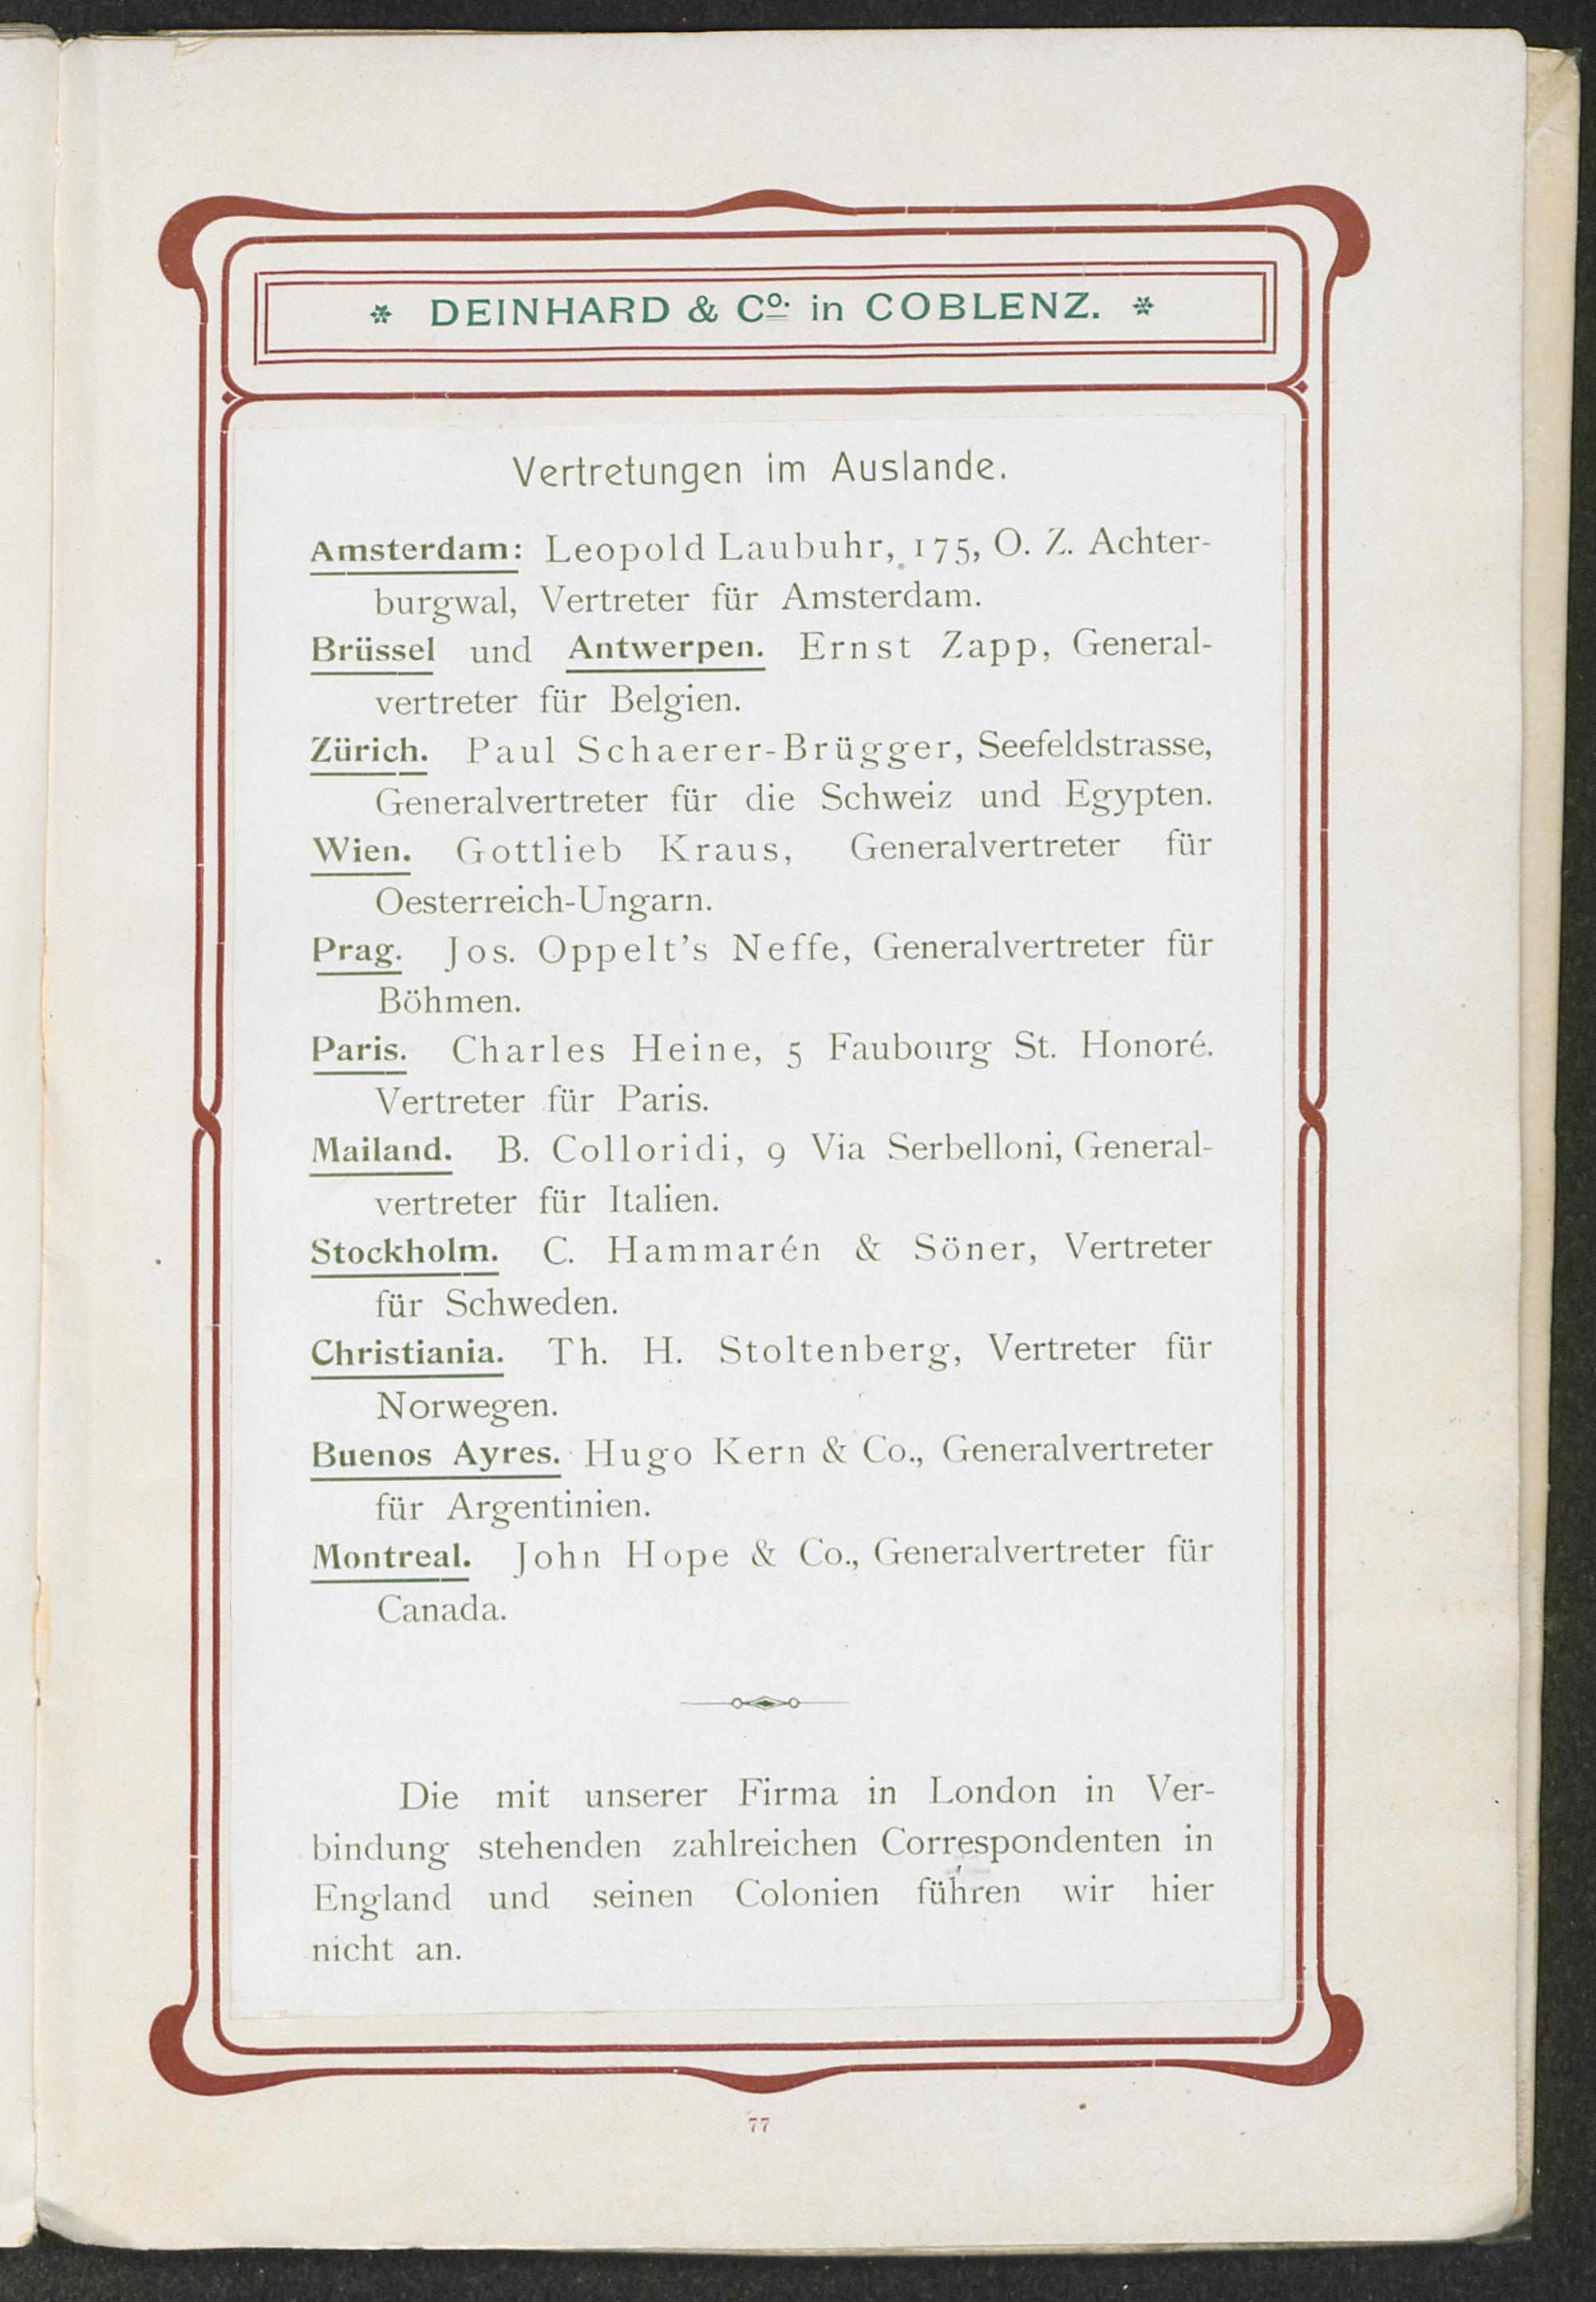 * DEINHARD & Co. in COBLENZ. *
Vertretungen im Auslande.
Amsterdam: Leopold Laubuhr, 175, O. Z. Achter-
burgwal, Vertreter für Amsterdam.
Brüssel und Antwerpen. Ernst Zapp, General-
vertreter für Belgien.
Zürich. Paul Schaerer-Brügger, Seefeldstrasse,
Generalvertreter für die Schweiz und Egypten.
Wien. Gottlieb Kraus, Generalvertreter für
Oesterreich-Ungarn.
Prag. Jos. Oppelt's Neffe, Generalvertreter für
Böhmen.
Paris. Charles Heine, 5 Faubourg St. Honoré.
Vertreter für Paris.
Mailand. B. Colloridi, 9 Via Serbelloni, General-
vertreter für Italien.
Stockholm. C. Hammarén & Söner, Vertreter
für Schweden.
Christiania. Th. H. Stoltenberg, Vertreter für
Norwegen.
Buenos Ayres. Hugo Kern & Co., Generalvertreter
für Argentinien.
Montreal. John Hope & Co., Generalvertreter für
Canada.
Die mit unserer Firma in London in Ver-
bindung stehenden zahlreichen Correspondenten in
England und seinen Colonien führen wir hier
nicht an.
77